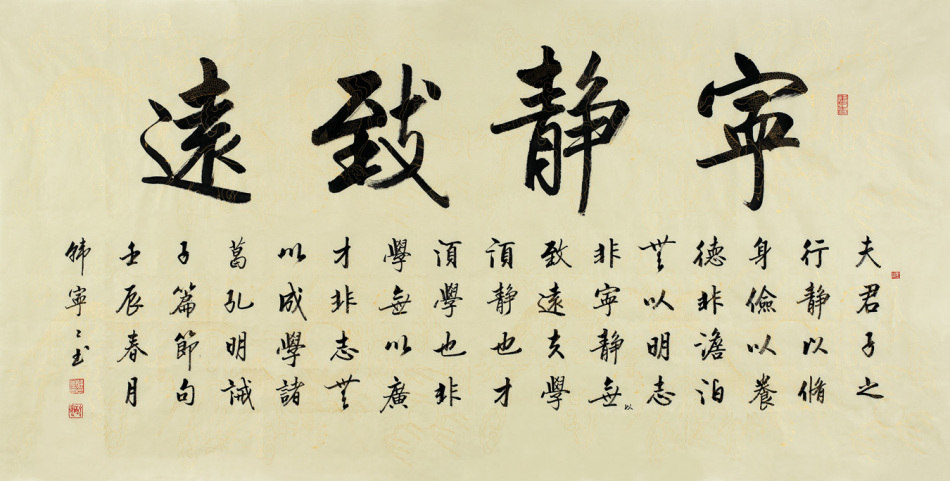 寧静致遠
夫君子之
行静以脩
身儉以養
德非澹泊
無以明志
非寧静無以
致遠夫學
須静也才
須學也非
學無以廣
才非志無
以成學諸
葛孔明誡
子篇節句
壬辰春月
韩寧〻书